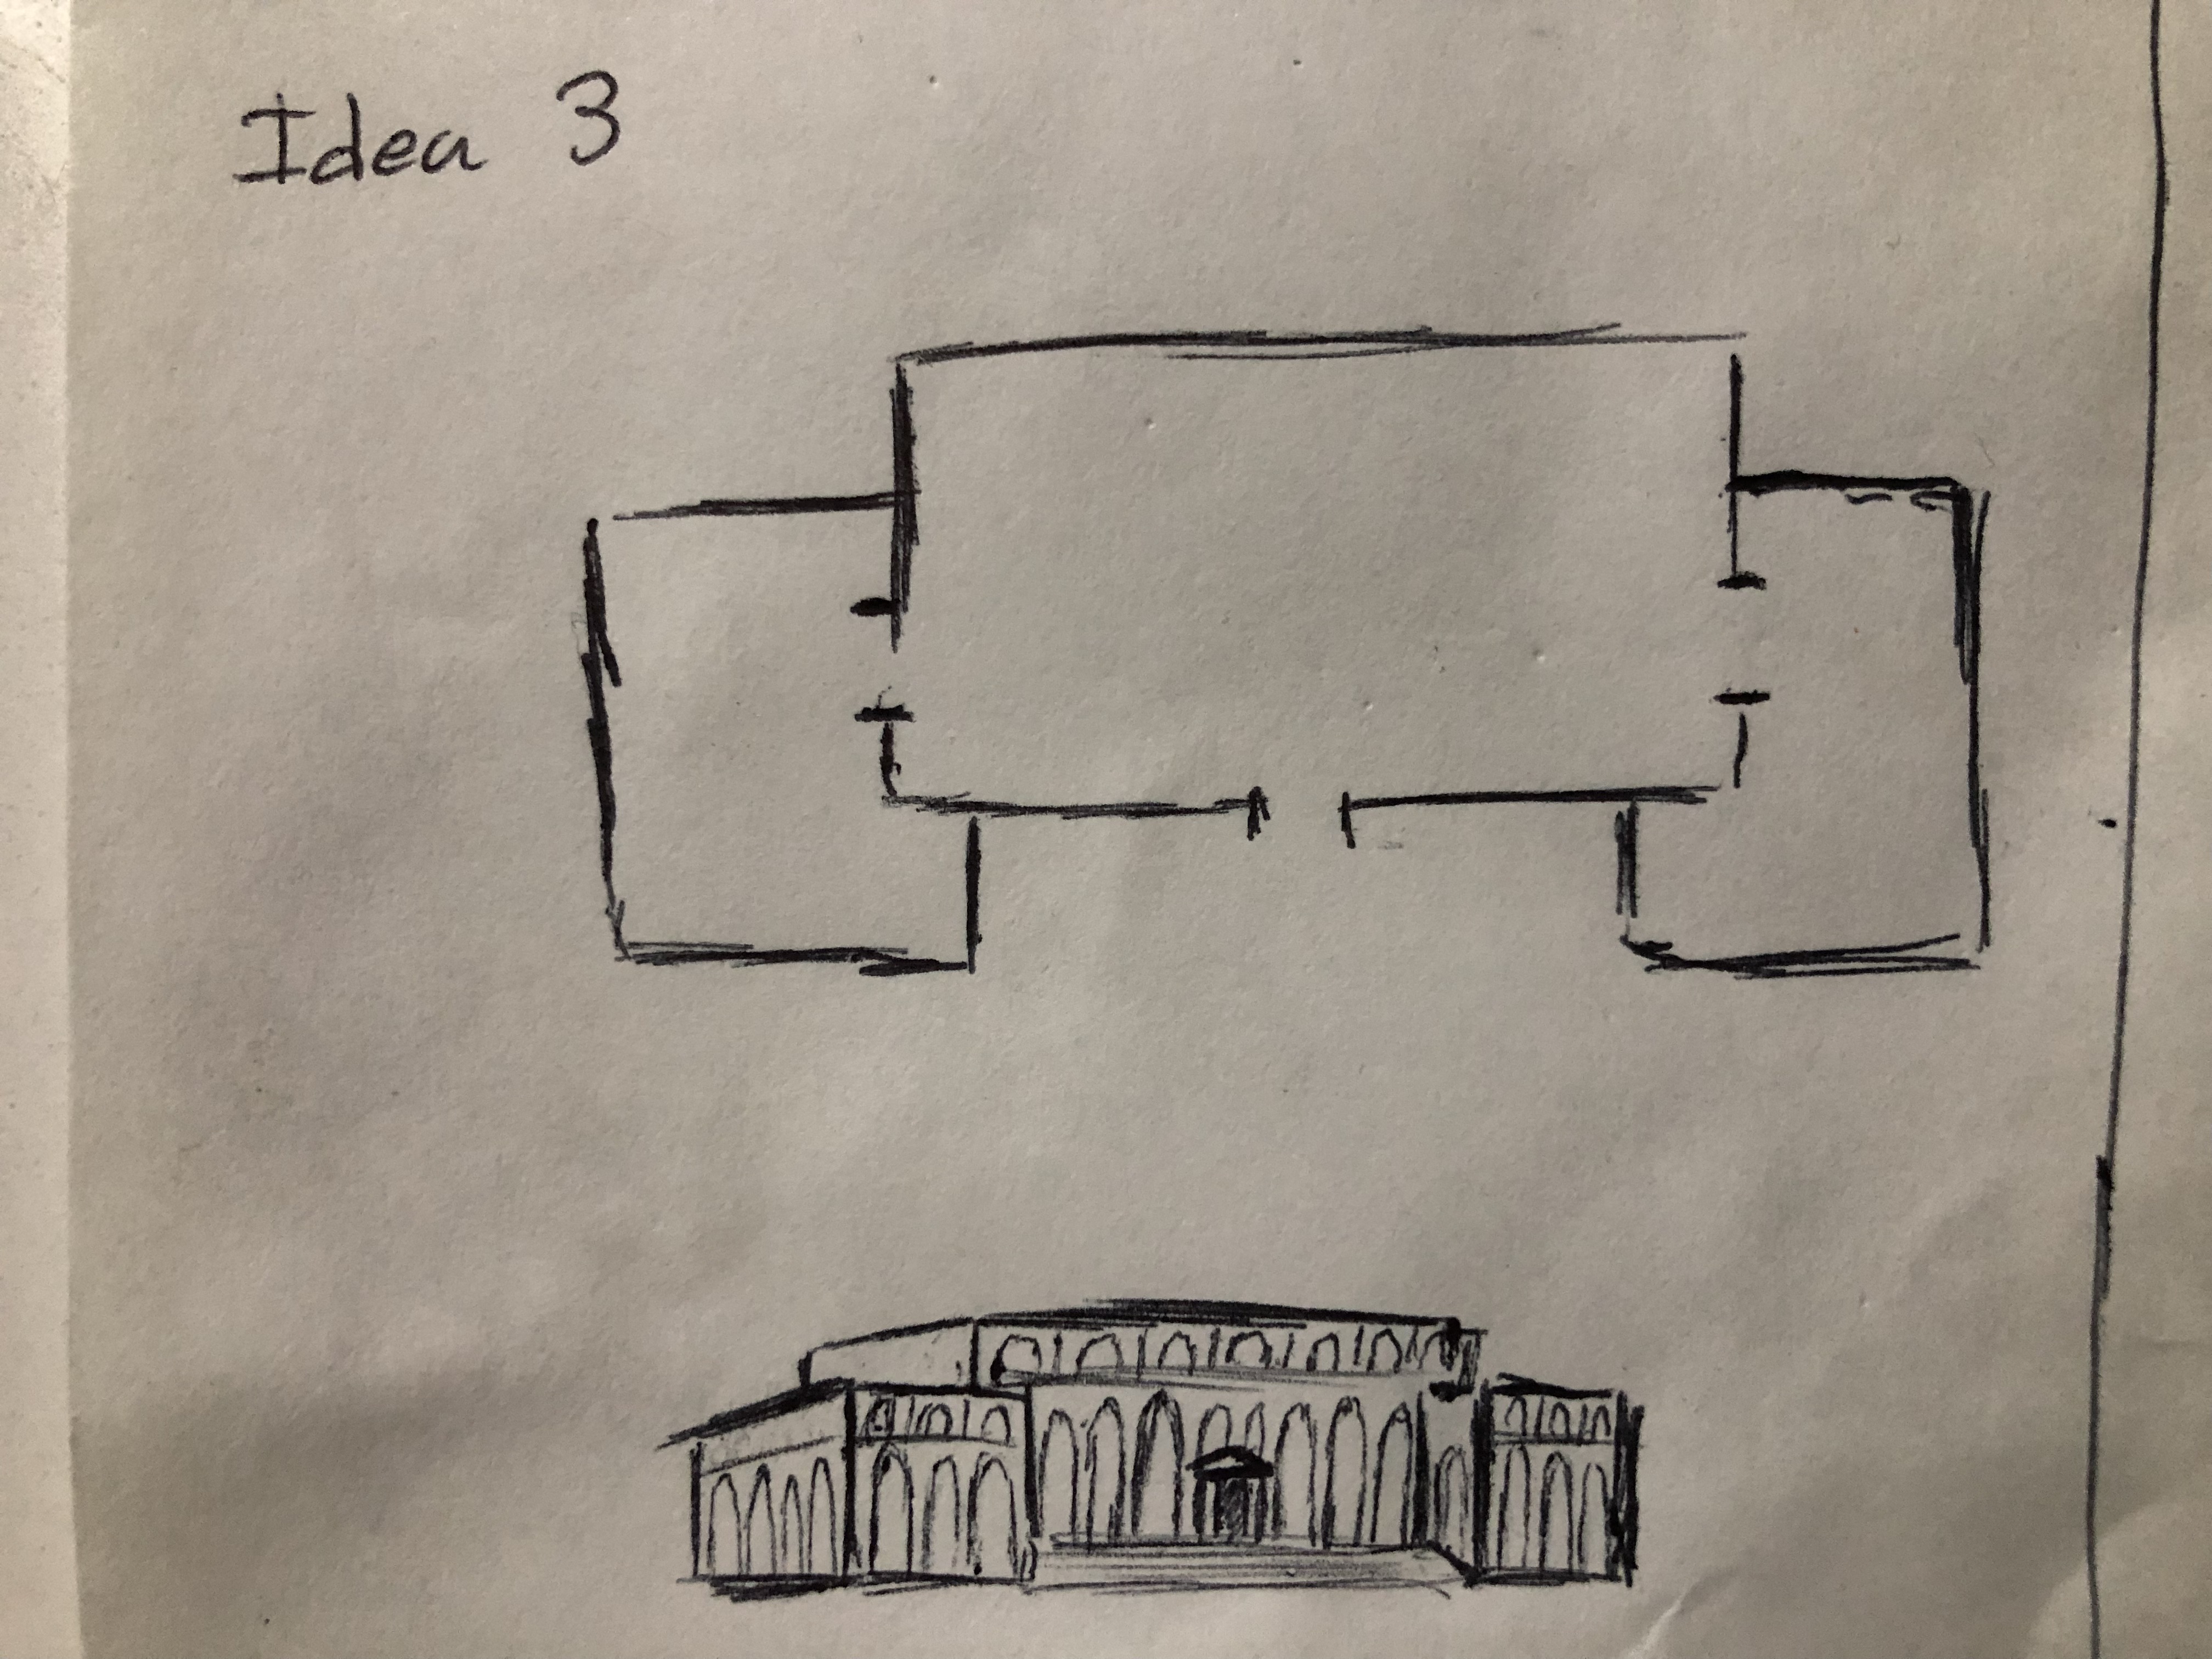 Idea 3